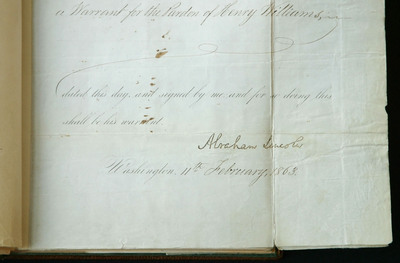 a Warrant for the Pardon of Henry Williams,
dated this day, and signed by me and for so doing this
shall be his warrant.
Abraham Lincoln
Washington, 11th February, 1863.